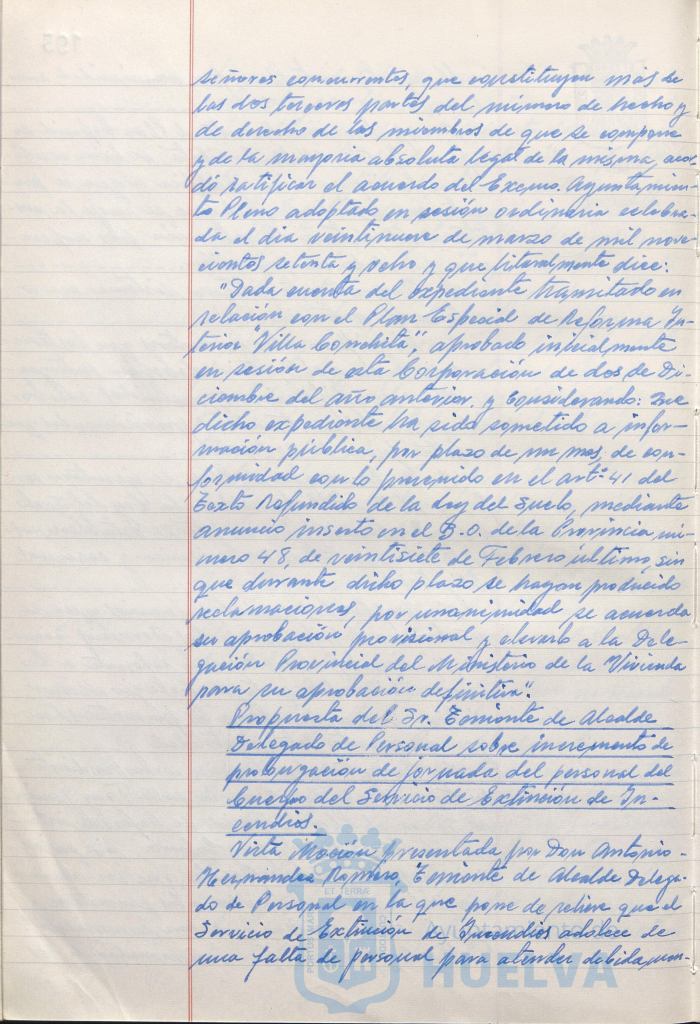 señores concurrentes, que constituyen más de
las dos terceras partes del número de hecho y
de derecho de los miembros de que se compone
y de la mayoría absoluta legal de la misma, acor-
dó ratificar el acuerdo del Excmo. Ayuntamien-
to Pleno adoptado en sesión ordinaria celebra-
da el día veintinueve de marzo de mil nove-
cientos setenta y ocho y que literalmente dice:
"Dada cuenta del expediente tramitado en
relación con el Plan Especial de Reforma In-
terior "Villa Conchita", aprobado inicialmente
en sesión de esta Corporación de dos de Di-
ciembre del año anterior, y Considerando: Que
dicho expediente ha sido sometido a infor-
mación pública, por plazo de un mes, de con-
formidad con lo prevenido en el artº 41 del
Texto Refundido de la Ley del Suelo, mediante
anuncio inserto en el B.O. de la Provincia nú-
mero 48, de veintisiete de Febrero último, sin
que durante dicho plazo se hayan producido
reclamaciones, por unanimidad se acuerda
su aprobación provisional y elevarlo a la Dele-
gación Provincial del Ministerio de la Vivienda
para su aprobación definitiva".
Propuesta del Sr. Teniente de Alcalde
Delegado de Personal sobre incremento de
prolongación de jornada del personal del
Cuerpo del Servicio de Extinción de In-
cendios.
Vista Moción presentada por Don Antonio
Hernández Romero, Teniente de Alcalde Delega-
do de Personal en la que pone de relieve que el
Servicio de Extinción de Incendios adolece de
una falta de personal para atender debidamen-
HUELVA